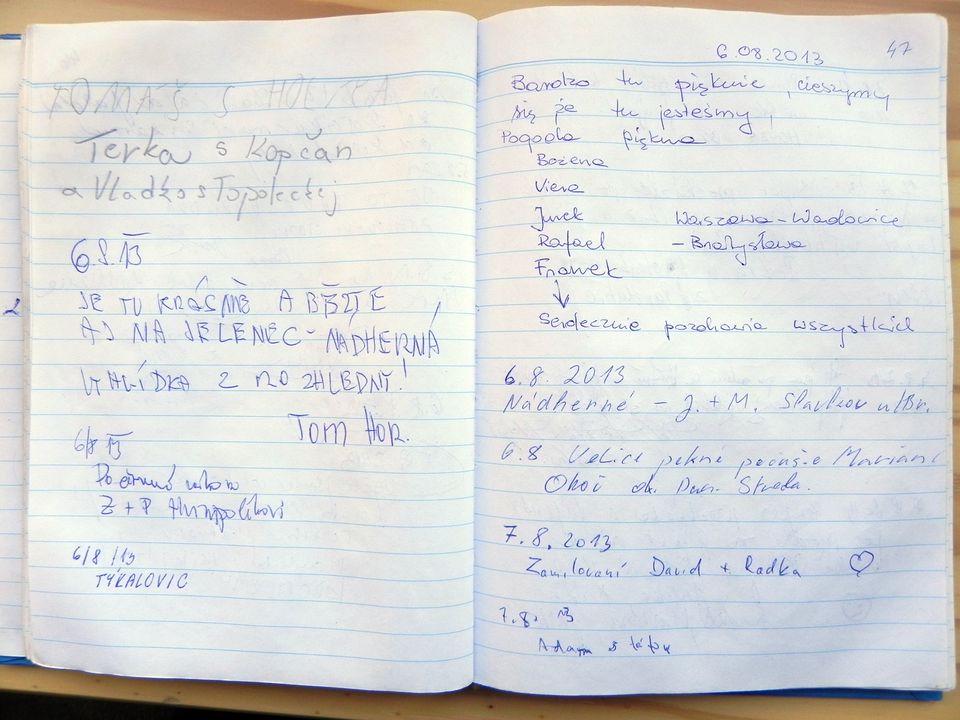 TOMÁŠ S
Terka s Kopčan
a Vladko s Topoleckej
6.8.13
JE TU KRÁSNĚ A BĚŽTE
AJ NA JELENEC - NÁDHERNÁ
VYHLÍDKA Z ROZHLEDNY!
TOM HOR.
6/8 13
Z + P
6/8/13
TÝKALOVIC
47
6.08.2013
Bardzo tu pięknie, cieszymy
się że tu jesteśmy,
Pogoda piękna
Bożena
Viera
Jurek Warszawa - Wadowice
Rafael - Bratysława
Franek
Serdecznie pozdrawia wszystkich
6.8. 2013
Nádherné - J. + M. Slavkov u/Br.
6.8 Velice pekné počasie Marian
Okoč ok. Dun. Streda.
7.8.2013
Zamilovaní David + Radka ♡
7.8. 13
Adam s tátou